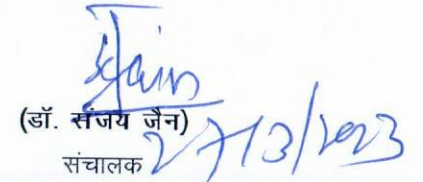 Jain
(डॉ. संजय जैन)
संचालक 27/3/2023